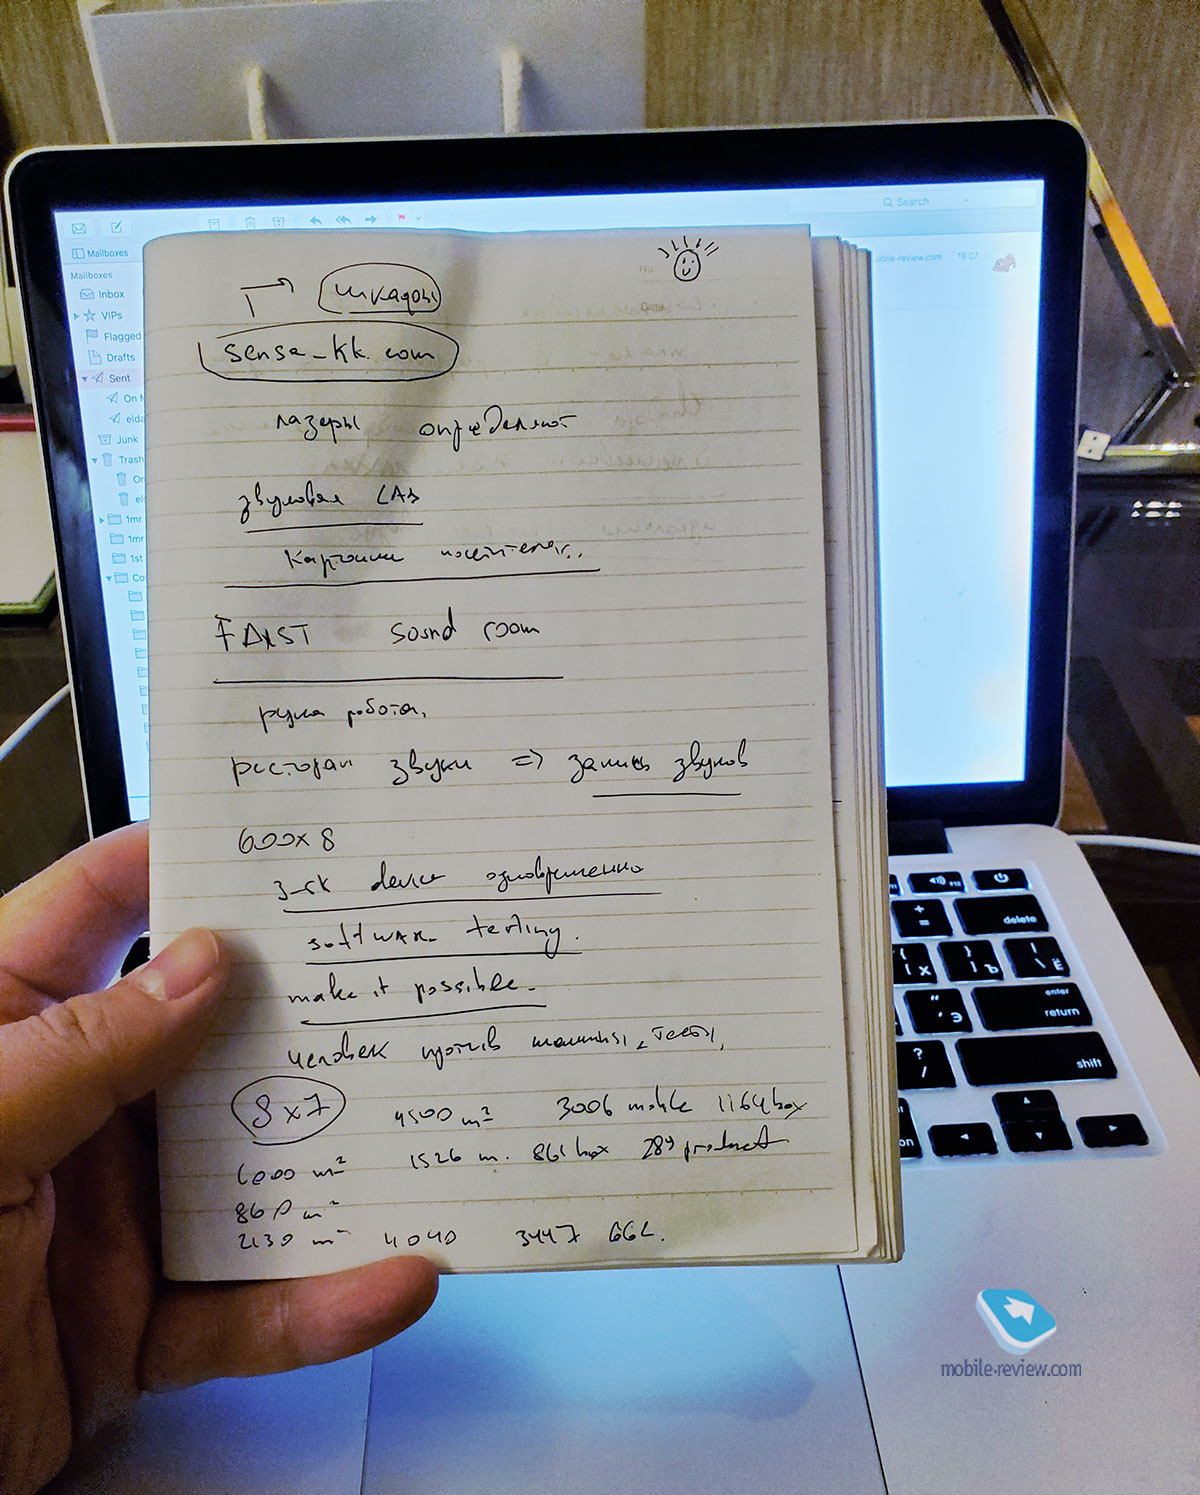 Search
Mailboxes
Mailboxes
Inbox
VIPs
Flagged
Drafts
Sent
On M
elda
Junk
Trash
On
1mr
1mr
1st
Co
mobile-review.com 19:07
шкафы
sense-kk.com
лазеры определяют
звуковая LAB
Картинки посетителя..
sound room
рука робота,
ресторан звуки => запись звуков
600x8
device одновременно
software testing.
make it possible.
человек против машины, тесты,
8x7 4500 m² 3006 mobile 1164 box
6000 m² 1526 m. 861 box 289 product
860 m²
2130 m² 4040 3447 662.
delete
enter
return
shift
mobile-review.com